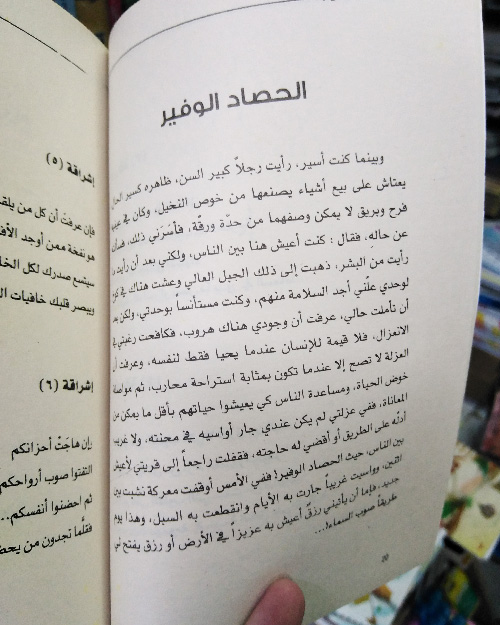 الحصاد الوفير
وبينما كنت أسير، رأيت رجلاً كبير السن، ظاهره كسير
يعتاش على بيع أشياء يصنعها من خوص النخيل، وكان في
فرح وبريق لا يمكن وصفهما من حدّة ورقّة، فأسَرَني ذلك،
عن حاله، فقال: كنت أعيش هنا بين الناس، ولكني بعد أن رأيت
رأيت من البشر، ذهبت إلى ذلك الجبل العالي وعشت هناك في
لوحدي علّني أجد السلامة منهم، وكنت مستأنساً بوحدتي، ولكن
أن تأملت حالي، عرفت أن وجودي هناك هروب، فكافحت رغبتي في
الانعزال، فلا قيمة للإنسان عندما يحيا فقط لنفسه، وعرفت أن
العزلة لا تصح إلا عندما تكون بمثابة استراحة محارب، ثم مواصلة
خوض الحياة، ومساعدة الناس كي يعيشوا حياتهم بأقل ما يمكن من
المعاناة، ففي عزلتي لم يكن عندي جار أواسيه في محنته، ولا غريب
أدلّه على الطريق أو أقضي له حاجته، فقفلت راجعاً إلى قريتي لأعيش
بين الناس، حيث الحصاد الوفير! ففي الأمس أوقفت معركة نشبت بين
اثنين، وواسيت غريباً جارت به الأيام وانقطعت به السبل، وهذا يوم
جديد، فإما أن يأتيني رزق أعيش به عزيزاً في الأرض أو رزق يفتح لي
طريقاً صوب السماء!...
إشراقة (٥)
فإن عرفت أن كل من
هو نفخة ممن أوجد
سيتسع صدرك لكل
ويبصر قلبك خافيات
إشراقة (٦)
إن هاجَتْ أحزانكم
التفتوا صوب أرواحكم
ثم احضنوا أنفسكم..
فقلّما تجدون من